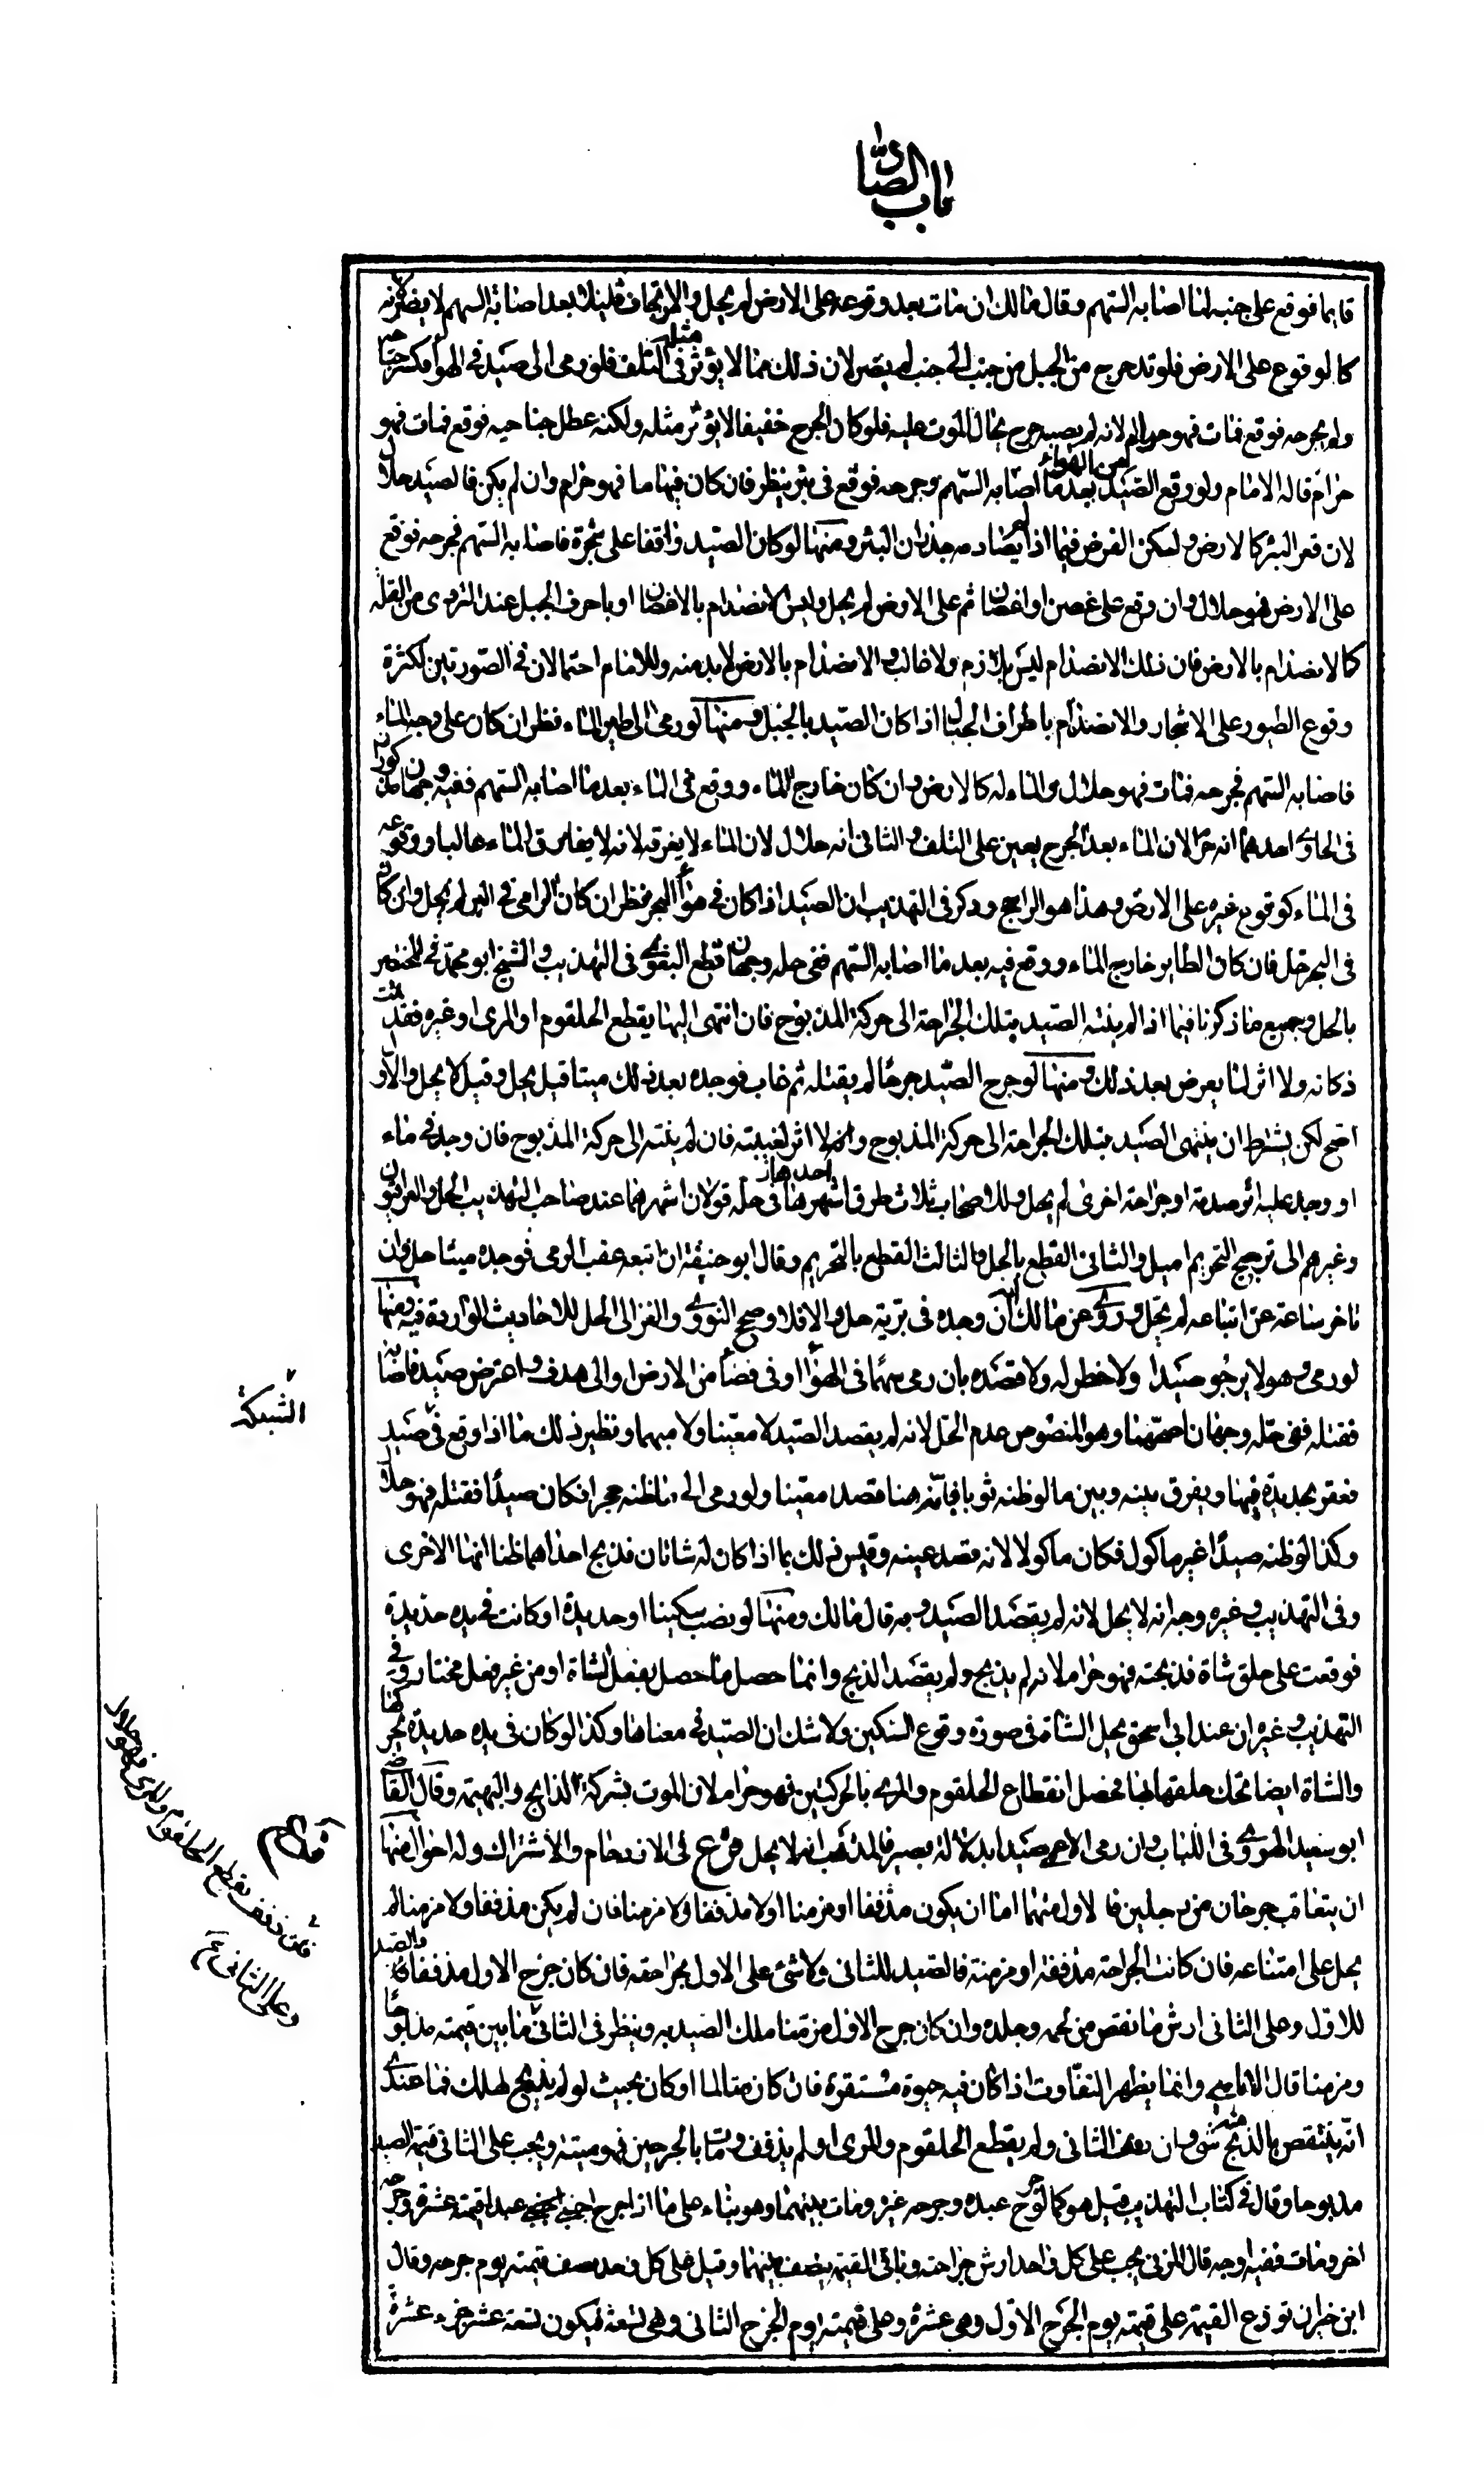 باب الصيد
قايما فوقع على جنبه لما اصابه السهم وقال مالك ان مات بعد وقوعه على الارض لم يحل والارتجاف قليلا بعد اصابة السهم لا يضر لانه
كالوقوع على الارض فلو تدحرج من الجبل من جنب الى جنب لم يضر لان ذلك مما لا يؤثر مثله فى التلف فلو رمى الى صيد فى الهوا فكسر جناحه
ولم يجرحه فوقع فمات فهو حرام لانه لم يصبه جرح يحال الموت عليه فلو كان الجرح خفيفا لا يؤثر مثله ولكنه عطل جناحيه فوقع فمات فهو
حرام قاله الامام ولو وقع الصيد من الهواء بعد ما اصابه السهم وجرحه فوقع فى بئر ينظر فان كان فيها ما فهو حرام وان لم يكن فالصيد حلال
لان قعر البئر كالارض وليكن الفرض فيما اذا لم يصادمه جدران البئر ومنها لو كان الصيد واقفا على شجرة فاصابه السهم فجرحه فوقع
على الارض فهو حلال وان وقع على غصن او اغصان ثم على الارض لم يحل وليس الانصدام بالاغصان او باحرف الجبل عند التردى من القلة
كالانصدام بالارض فان ذلك الانصدام ليس بلازم ولا غالب والانصدام بالارض لا بد منه وللامام احتمالان فى الصورتين لكثرة
وقوع الطيور على الاشجار والانصدام باطراف الجبال اذا كان الصيد بالجبل ومنها لو رمى الى طير الماء نظر ان كان على وجه الماء
فاصابه السهم فجرحه فمات فهو حلال والماء له كالارض وان كان خارج الماء ووقع فى الماء بعد ما اصابه السهم ففيه وجهان مذكوران
فى الحاوى احدهما انه حرام لان الماء بعد الجرح يعين على التلف والثانى انه حلال لان الماء لا يغرقه لانه لا يفارق الماء غالبا ووقوعه
فى الماء كوقوع غيره على الارض وهذا هو الراجح وذكر فى التهذيب ان الصيد اذا كان فى هوا البحر نظر ان كان الرامى فى البر لم يحل وان كان
فى البحر حل فان كان الطاير خارج الماء ووقع فيه بعد ما اصابه السهم ففى حله وجهان قطع البغوى فى التهذيب والشيخ ابو محمد فى المختصر
بالحل وجميع ما ذكرنا فيما اذا لم ينته الصيد بتلك الجراحة الى حركة المذبوح فان انتهى اليها بقطع الحلقوم او المرى او غيره فقد تمت
ذكاته ولا اثر لما يعرض بعد ذلك ومنها لو جرح الصيد جرحا لم يقتله ثم غاب فوجده بعد ذلك ميتا قيل يحل وقيل لا يحل والاول
اصح لكن يشترط ان ينتهى الصيد بتلك الجراحة الى حركة المذبوح ولا اثر لغيبته فان لم ينته الى حركة المذبوح فان وجد فى ماء
او وجد عليه اثر صدمة او جراحة اخرى لم يحل وللاصحاب ثلاث طرق اشهرها احدها فى حله قولان اشهرهما عند صاحب التهذيب الحل والعراقيون
وغيرهم الى ترجيح التحريم اميل والثانى القطع بالحل والثالث القطع بالتحريم وقال ابو حنيفة ان اتبعه عقب الرمى فوجده ميتا حل وان
تاخر ساعة عن اتباعه لم يحل وروى عن مالك انه ان وجده فى برية حل والا فلا وصحح النووى والغزالى الحل للاحاديث الواردة فيه ومنها
لو رمى وهو لا يرجو صيدا ولا خطر له ولا قصده بان رمى سهما فى الهوا او فى فضا من الارض او الى هدف واعترض صيد فاصابه
فقتله ففى حله وجهان اصحهما وهو المنصوص عدم الحل لانه لم يقصد الصيد لا معينا ولا مبهما ونظير ذلك ما اذا وقع فى صيد
فعقر بحديدة فيها ويفرق بينه وبين ما لو ظنه ثوبا فانه هنا قصد معينا ولو رمى الى ما ظنه حجرا فكان صيدا فقتله فهو حلال
وكذا لو ظنه صيدا غير ماكول فكان ماكولا لانه قصد عينه وقيس ذلك بما اذا كان له شاتان فذبح احداهما ظنا انها الاخرى
وفى التهذيب وغيره وجه انه لا يحل لانه لم يقصد الصيد وبه قال مالك ومنها لو نصب سكينا او حديدة او كانت فى يده حديدة
فوقعت على حلق شاة فذبحته فهو حرام لانه لم يذبح ولم يقصد الذبح وانما حصل ما حصل بفعل الشاة او من غير فعل مختار وفى
التهذيب وغيره ان عند ابى اسحق يحل الشاة فى صورة وقوع السكين ولا شك ان الصيد فى معناها وكذا لو كان فى يده حديدة يحركها
والشاة ايضا تحك حلقها بها فحصل انقطاع الحلقوم والمرى بالحركتين فهو حرام لان الموت بشركة الذابح والبهيمة وقال القاضى
ابو سعيد الهروى فى اللباب وان رمى الاعمى صيدا بدلالة بصير فالمذهب انه لا يحل فرع فى الازدحام والاشتراك وله احوال منها
ان يتعاقب جرحان من رجلين فالاول منهما اما ان يكون مذففا او مزمنا اولا مذففا ولا مزمنا فان لم يكن مذففا ولا مزمنا لم
يحل على امتناعه فان كانت الجراحة مذففة او مزمنة فالصيد للثانى ولا شئ على الاول بجراحته فان كان جرح الاول مذففا فالصيد
للاول وعلى الثانى ارش ما نقص من لحمه وجلده وان كان جرح الاول مزمنا ملك الصيد به وينظر فى الثانى ما بين قيمته مذبوحا
ومزمنا قال الامام وانما يظهر التفاوت اذا كان فيه حيوة مستقرة فان كان متالما او كان بحيث لو لم يذبح لهلك فما عندى
انه ينتقص بالذبح منه شئ وان الثانى ولم يقطع الحلقوم والمرى او لم يذفف ومات بالجرحين فهو ميتة ويجب على الثانى قيمة الصيد
مذبوحا وقال فى كتاب التهذيب قيل هو كما لو جرح عبده وجرحه غيره ومات بينهما وهو بناء على ما اذا جرح اجنبى عبدا قيمته عشرة وجرحه
اخر ومات ففيه اوجه قال المزنى يجب على كل واحد ارش جراحته وباقى القيمة ينصف بينهما وقيل على كل واحد نصف قيمته يوم جرحه وقال
ابن خيران توزع القيمة على قيمته يوم الجرح الاول وهى عشرة وعلى قيمته يوم الجرح الثانى وهى تسعة فيكون تسعة عشر جزء عشرة
الشبكة
فان ذفف بقطع الحلقوم والمرى فهو حلال
وعلى الثانى